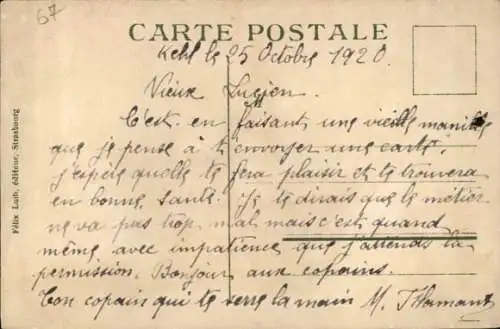 67
CARTE POSTALE
Kehl le 25 Octobre 1920.
Vieux Lucien.
C'est en faisant une vieille manille
que je pense à t'envoyer une carte.
j'espère quelle te fera plaisir et te trouvera
en bonne santé. Je te dirais que le métier
ne va pas trop mal mais c'est quand
même avec impatience que j'attends la
permission. Bonjour aux copains.
Ton copain qui te serre la main M.
Félix Luib, éditeur, Strasbourg